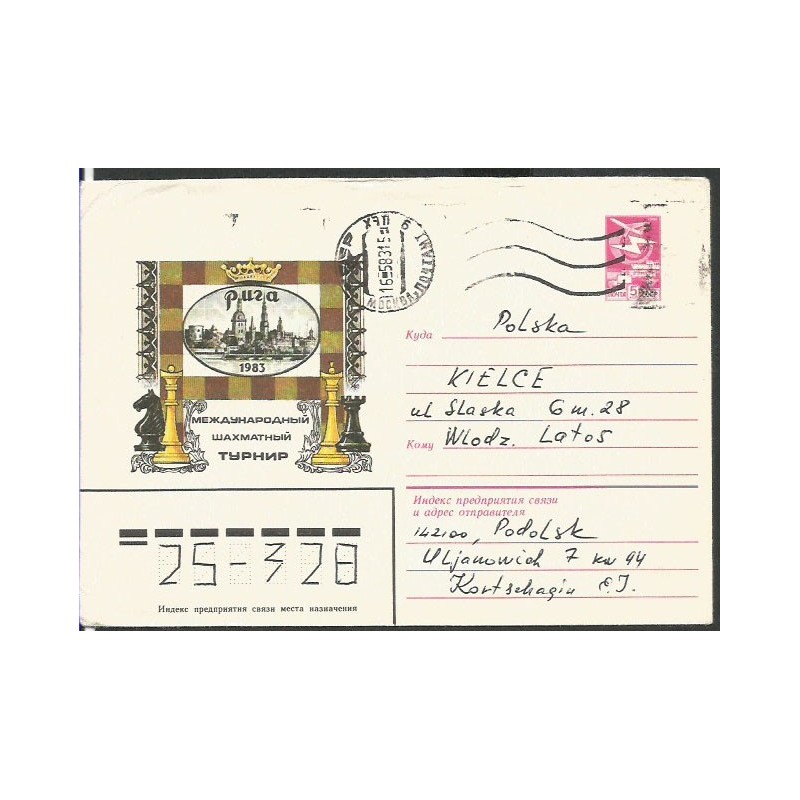 рига
1983
МЕЖДУНАРОДНЫЙ
ШАХМАТНЫЙ
ТУРНИР
МОСКВА
16-583
ПОЧТА
Куда Polska
KIELCE
ul Slaska 6 m. 28
Кому Wlodz. Latos
Индекс предприятия связи
и адрес отправителя
142100, Podolsk
Uljanowich 7 kw 94
Kortschagin E.I.
25-328
Индекс предприятия связи места назначения